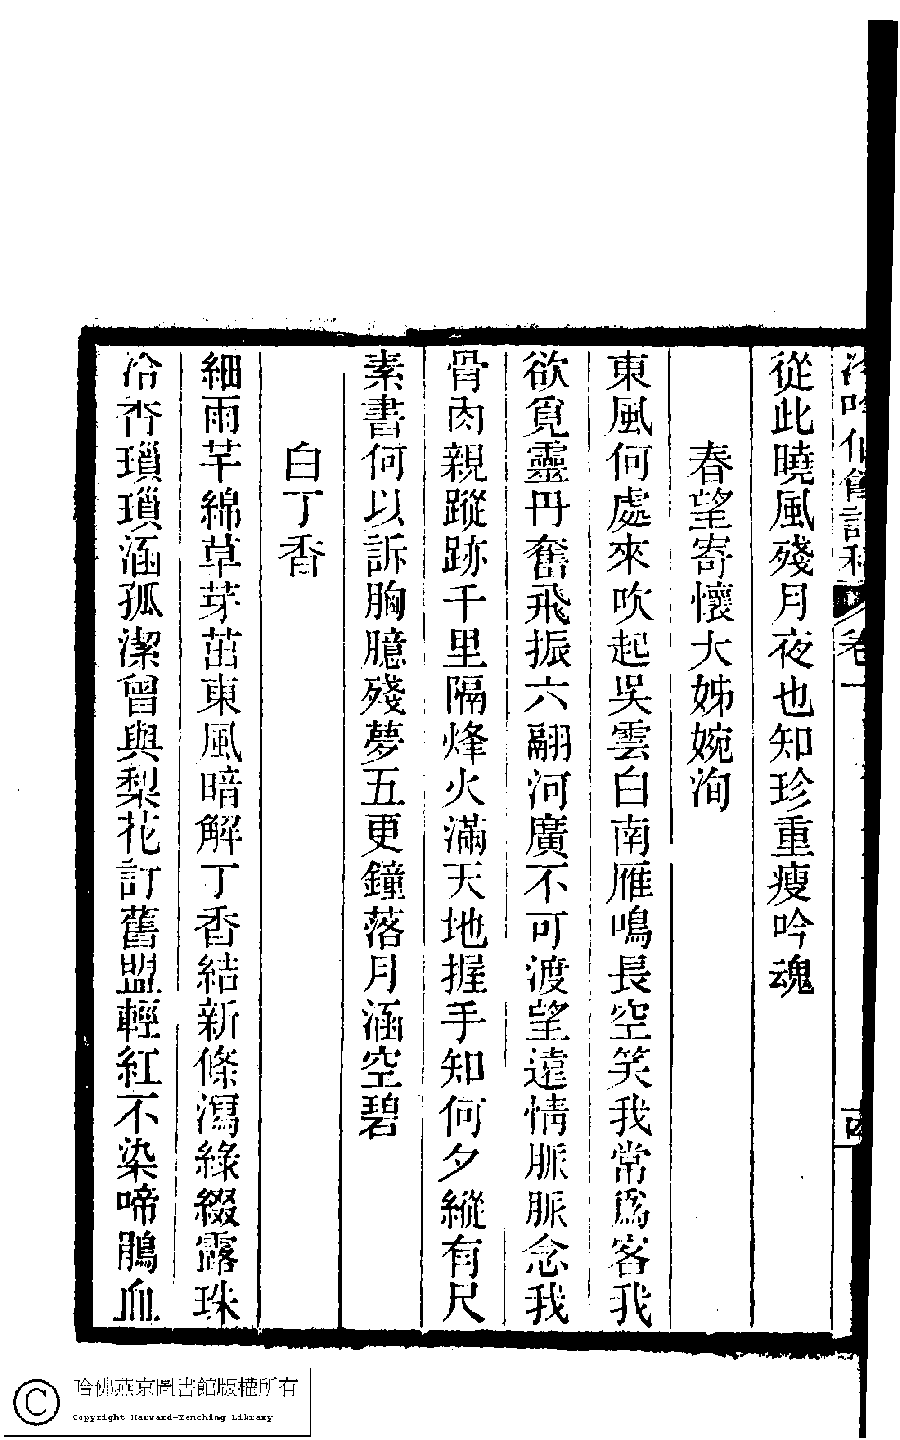 冷吟仙館詩稿 卷一
從此曉風殘月夜也知珍重瘦吟魂
春望寄懷大姊婉洵
東風何處來吹起吳雲白南雁鳴長空笑我常爲客我
欲覓靈丹奮飛振六翮河廣不可渡望遠情脈脈念我
骨肉親蹤跡千里隔烽火滿天地握手知何夕縱有尺
素書何以訴胸臆殘夢五更鐘落月涵空碧
白丁香
細雨芊綿草芽茁東風暗解丁香結新條瀉綠綴露珠
冷香瑣瑣涵孤潔曾與梨花訂舊盟輕紅不染啼鵑血
哈佛燕京圖書館版權所有
Copyright Harvard-Yenching Library